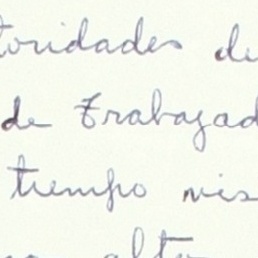 toridades de
de Trabajad
tiempo vis
alto